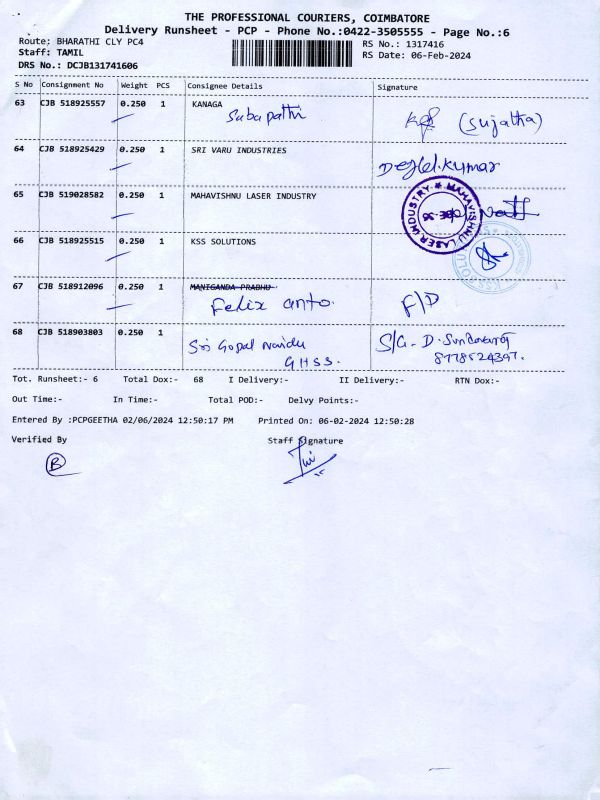 THE PROFESSIONAL COURIERS, COIMBATORE
Delivery Runsheet - PCP - Phone No.:0422-3505555 - Page No.:6
Route: BHARATHI CLY PC4 RS No.: 1317416
Staff: TAMIL RS Date: 06-Feb-2024
DRS No.: DCJB131741606
S No Consignment No Weight PCS Consignee Details Signature
63 CJB 518925557 0.250 1 KANAGA
Sabapathi (Sujatha)
64 CJB 518925429 0.250 1 SRI VARU INDUSTRIES
Kumar
65 CJB 519028582 0.250 1 MAHAVISHNU LASER INDUSTRY
MAHAVISHNU LASER INDUSTRY
CBE-36
66 CJB 518925515 0.250 1 KSS SOLUTIONS
KSS SOLUTIONS
67 CJB 518912096 0.250 1 MANIGANDA PRABHU
Felix anto. F/D
68 CJB 518903803 0.250 1
Sri Gopal Naidu S/G - D.
GHSS. 8778524397.
Tot. Runsheet:- 6 Total Dox:- 68 I Delivery:- II Delivery:- RTN Dox:-
Out Time:- In Time:- Total POD:- Delvy Points:-
Entered By :PCPGEETHA 02/06/2024 12:50:17 PM Printed On: 06-02-2024 12:50:28
Verified By Staff Signature
B